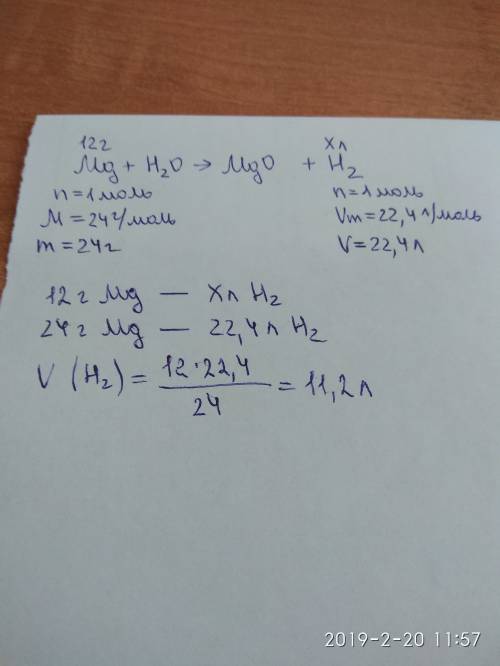 12г хл
Mg + H₂O → MgO + H₂
n = 1 моль n = 1 моль
M = 24 г/моль Vm = 22,4 л/моль
m = 24 г V = 22,4 л
12 г Mg — Хл H₂
24 г Mg — 22,4 л H₂
V (H₂) = 12·22,4 / 24 = 11,2 л
2019-2-20 11:57